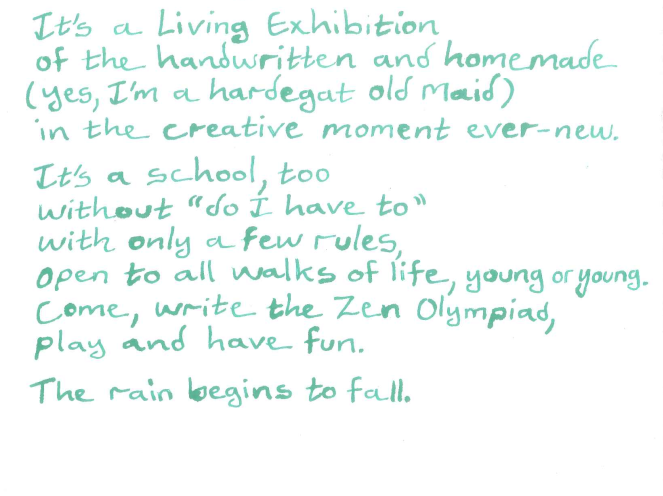 It's a Living Exhibition
of the handwritten and homemade
(yes, I'm a hardegat old maid)
in the creative moment ever-new.
It's a school, too
without "do I have to"
with only a few rules,
open to all walks of life, young or young.
Come, write the Zen Olympiad,
play and have fun.
The rain begins to fall.